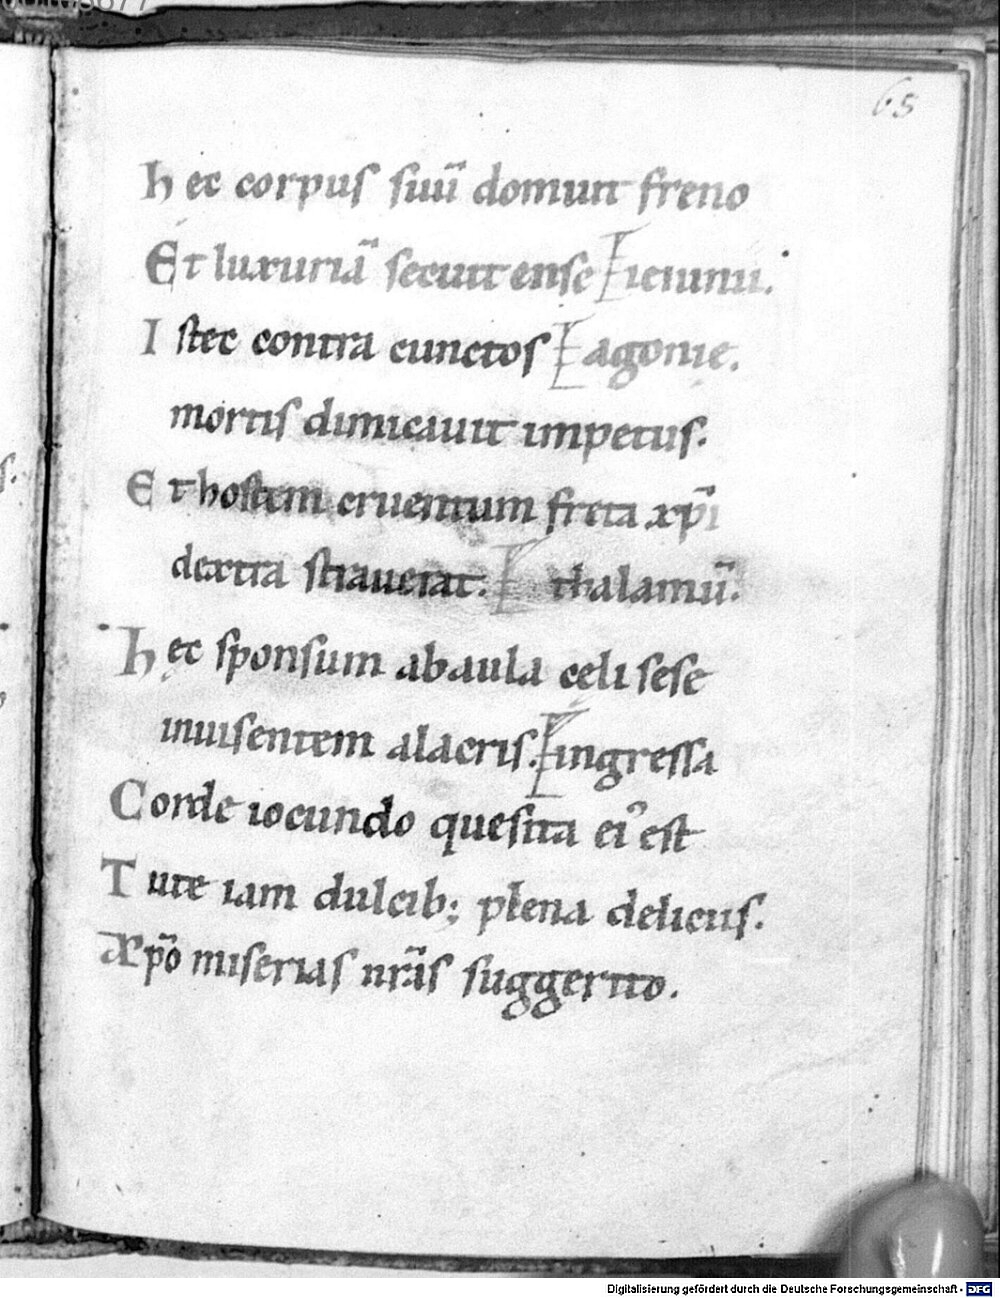 65
hec corpus suū domuit freno
Et luxuriā secuit ense ieiunii.
Istec contra cunctos agonie.
mortis dimicauit impetus.
Et hostem cruentum freta xp̄i
dextra strauerat. thalamū.
hęc sponsum ab aula celi sese
inuisentem alacris. ingressa
Corde iocundo quesita ei est
Tute iam dulcib; plena deliciis.
Xp̄o miserias nr̄as suggerito.
Digitalisierung gefördert durch die Deutsche Forschungsgemeinschaft - DFG